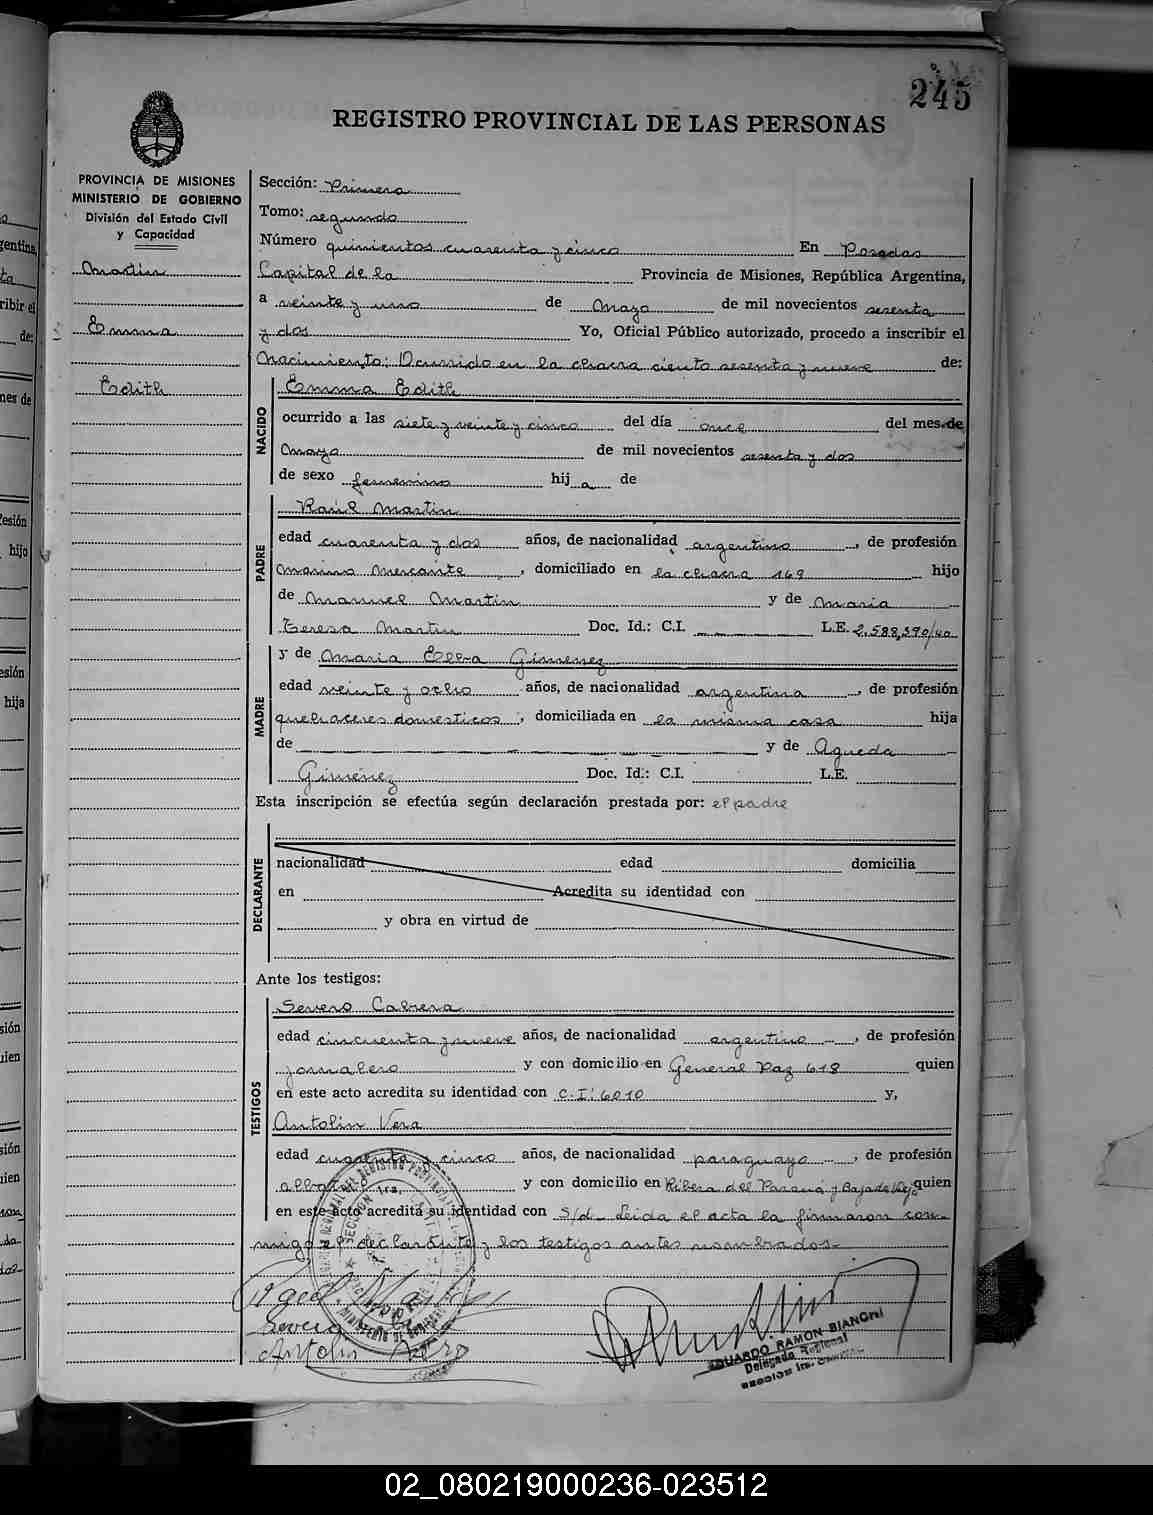 245
REGISTRO PROVINCIAL DE LAS PERSONAS
PROVINCIA DE MISIONES
MINISTERIO DE GOBIERNO
División del Estado Civil
y Capacidad
Martin
Emma
Edith
Sección: Primera
Tomo: segundo
Número quinientos cuarenta y cinco En Posadas
Capital de la Provincia de Misiones, República Argentina,
a veinte y uno de Mayo de mil novecientos sesenta
y dos Yo, Oficial Público autorizado, procedo a inscribir el
Nacimiento: Ocurrido en la chacra ciento sesenta y nueve de:
NACIDO
Emma Edith
ocurrido a las siete y veinte y cinco del día once del mes de
Mayo de mil novecientos sesenta y dos
de sexo femenino hij a de
PADRE
Raúl Martin
edad cuarenta y dos años, de nacionalidad argentino, de profesión
Marino Mercante, domiciliado en la chacra 169 hijo
de Manuel Martin y de Maria
Teresa Martin Doc. Id.: C.I. L.E. 2.588.390/40
MADRE
y de Maria Elba Gimenez
edad veinte y ocho años, de nacionalidad argentina, de profesión
quehaceres domesticos, domiciliada en la misma casa hija
de y de Agueda
Giménez Doc. Id.: C.I. L.E.
Esta inscripción se efectúa según declaración prestada por: el padre
DECLARANTE
nacionalidad edad domicilia
en Acredita su identidad con
y obra en virtud de
Ante los testigos:
TESTIGOS
Severo Cabrera
edad cincuenta y nueve años, de nacionalidad argentino, de profesión
jornalero y con domicilio en General Paz 618 quien
en este acto acredita su identidad con C.I: 6010 y,
Antolin Vera
edad cuarenta y cinco años, de nacionalidad paraguayo, de profesión
y con domicilio en Ribera del Paraná y Bajada Vieja quien
en este acto acredita su identidad con S/d- Leida el acta la firmaron con-
migo el declarante y los testigos antes nombrados-
Severo
Antolin Vera
EDUARDO RAMON BIANCHI
Delegado Regional
SECCION 1ra.
02_080219000236-023512